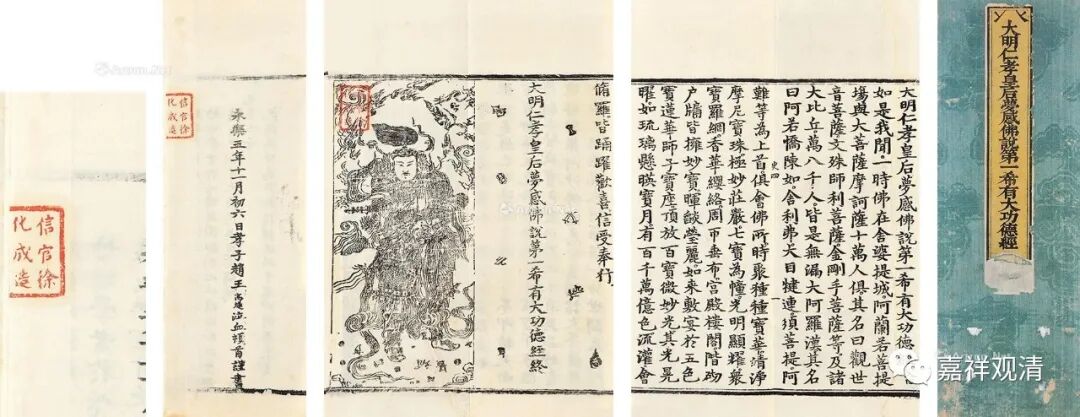 大明仁孝皇后夢感佛說第一希有大功德經
大明仁孝皇后夢感佛說第一希有大功德
如是我聞一時佛在舍婆提城阿蘭若菩提
場與大菩薩摩訶薩十萬人俱其名曰觀世
音菩薩文殊師利菩薩金剛手菩薩等及諸
大比丘萬八千人皆是無漏大阿羅漢其名
曰阿若憍陳如舍利弗大目犍連須菩提阿
史四 一
難等為上首俱會佛所時眾種種寶華清淨
摩尼寶珠極妙莊嚴七寶為幢光明顯耀衆
寶羅網香華纓絡周帀垂布宮殿樓閣階砌
户牖皆擁妙寶暉燄瑩麗如來敷宴於五色
寶蓮華師子寶座頂放七寶微妙光其光晃
曜如琉璃懸暎寶月有百千萬億色流灌會
脩羅皆踊躍歡喜信受奉行
大明仁孝皇后夢感佛說第一希有大功德經終
永樂五年十一月初六日孝子趙王高燧泣血頓首謹書
信官徐
化成造
信官徐
化成造
嘉祥观清